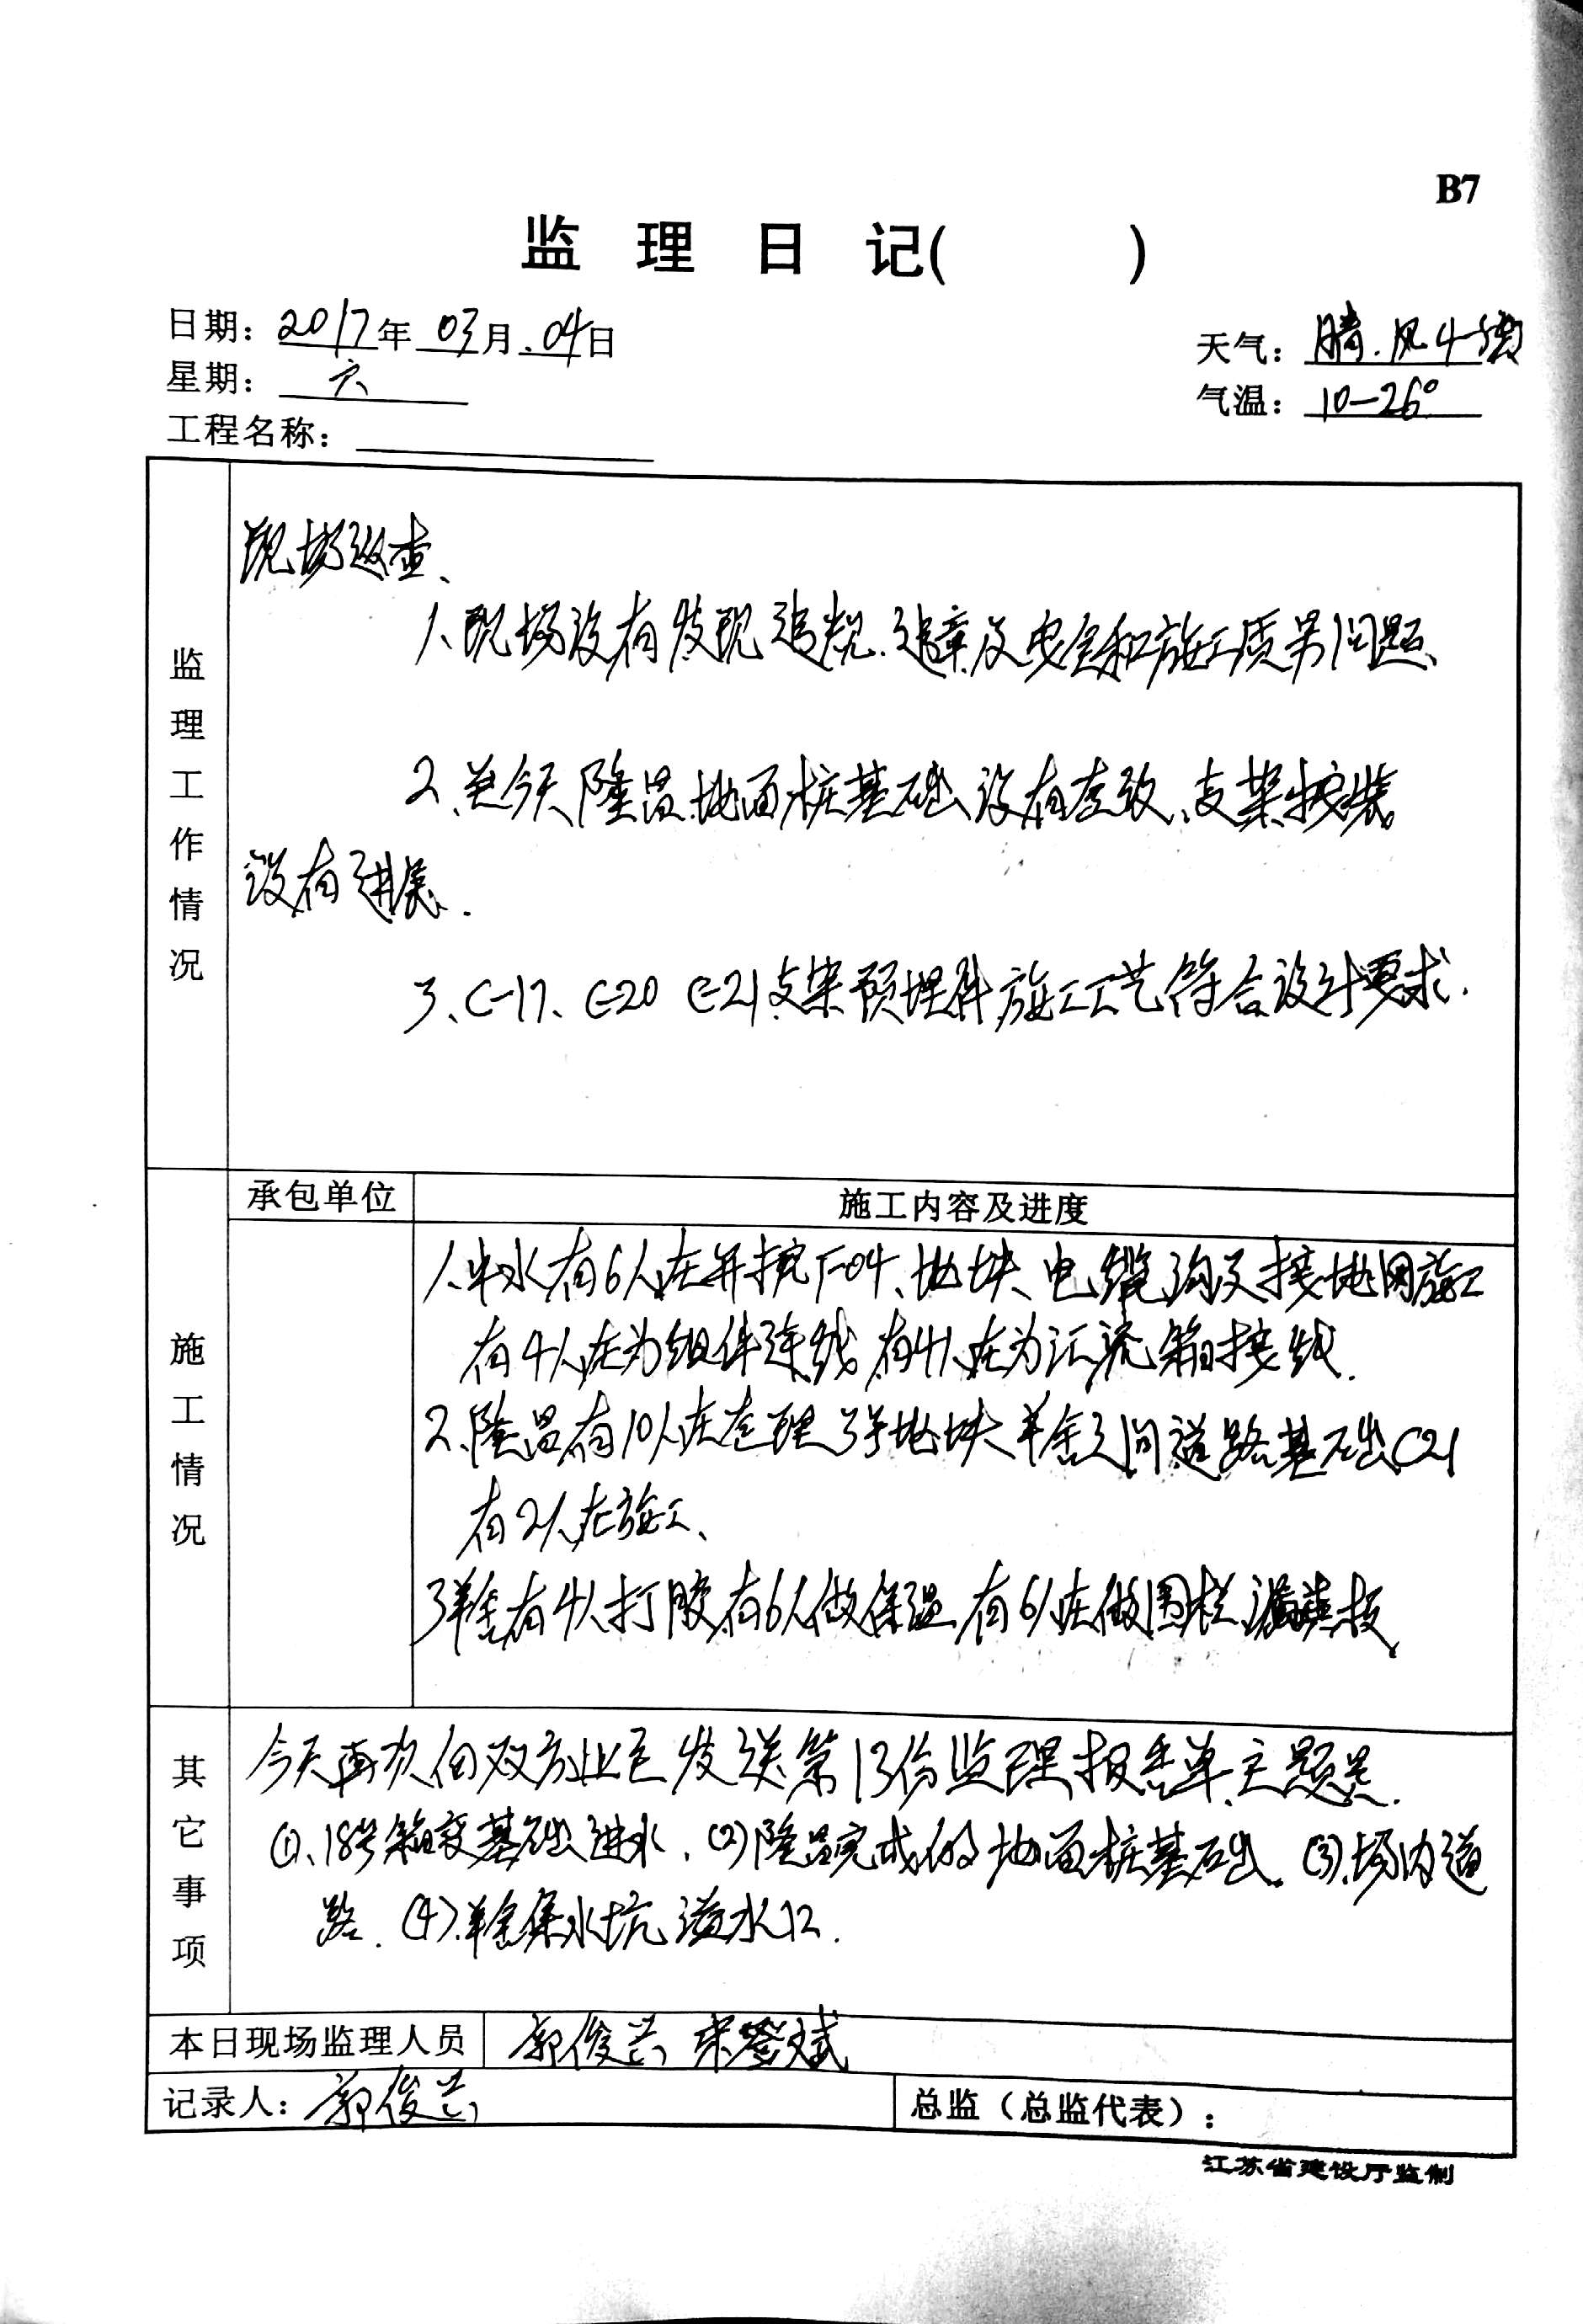 B7
监 理 日 记( )
日期: 2017年 03月 04日
天气: 晴.风4-5级
星期: 六
气温: 10-26°
工程名称:
监理工作情况
现场巡查、
1、现场没有发现违规.违章及安全和施工质量问题、
2、至今天隆昌地面桩基础没有整改、支架安装
没有进展.
3、C-17、C-20 C-21支架预埋件施工工艺符合设计要求.
承包单位
施工内容及进度
施工情况
1、中水有6人在开挖F-04、地块电缆沟及接地网施工
有4人在为组件连线 有4人在为汇流箱接线.
2、隆昌有10人在整理3号地块羊舍之间道路基础C21
有2人在施工、
3羊舍有4人打胶有6人做保温 有6人在做围栏、漏粪板
其它事项
今天再次向双方业主发送第13份监理报告单.主题是.
①、18号箱变基础进水.(2)隆昌完成的地面桩基础.(3).场内道
路.(4).羊舍集水坑溢水口.
本日现场监理人员
郭俊兰
记录人: 郭俊兰
总监(总监代表):
江苏省建设厅监制